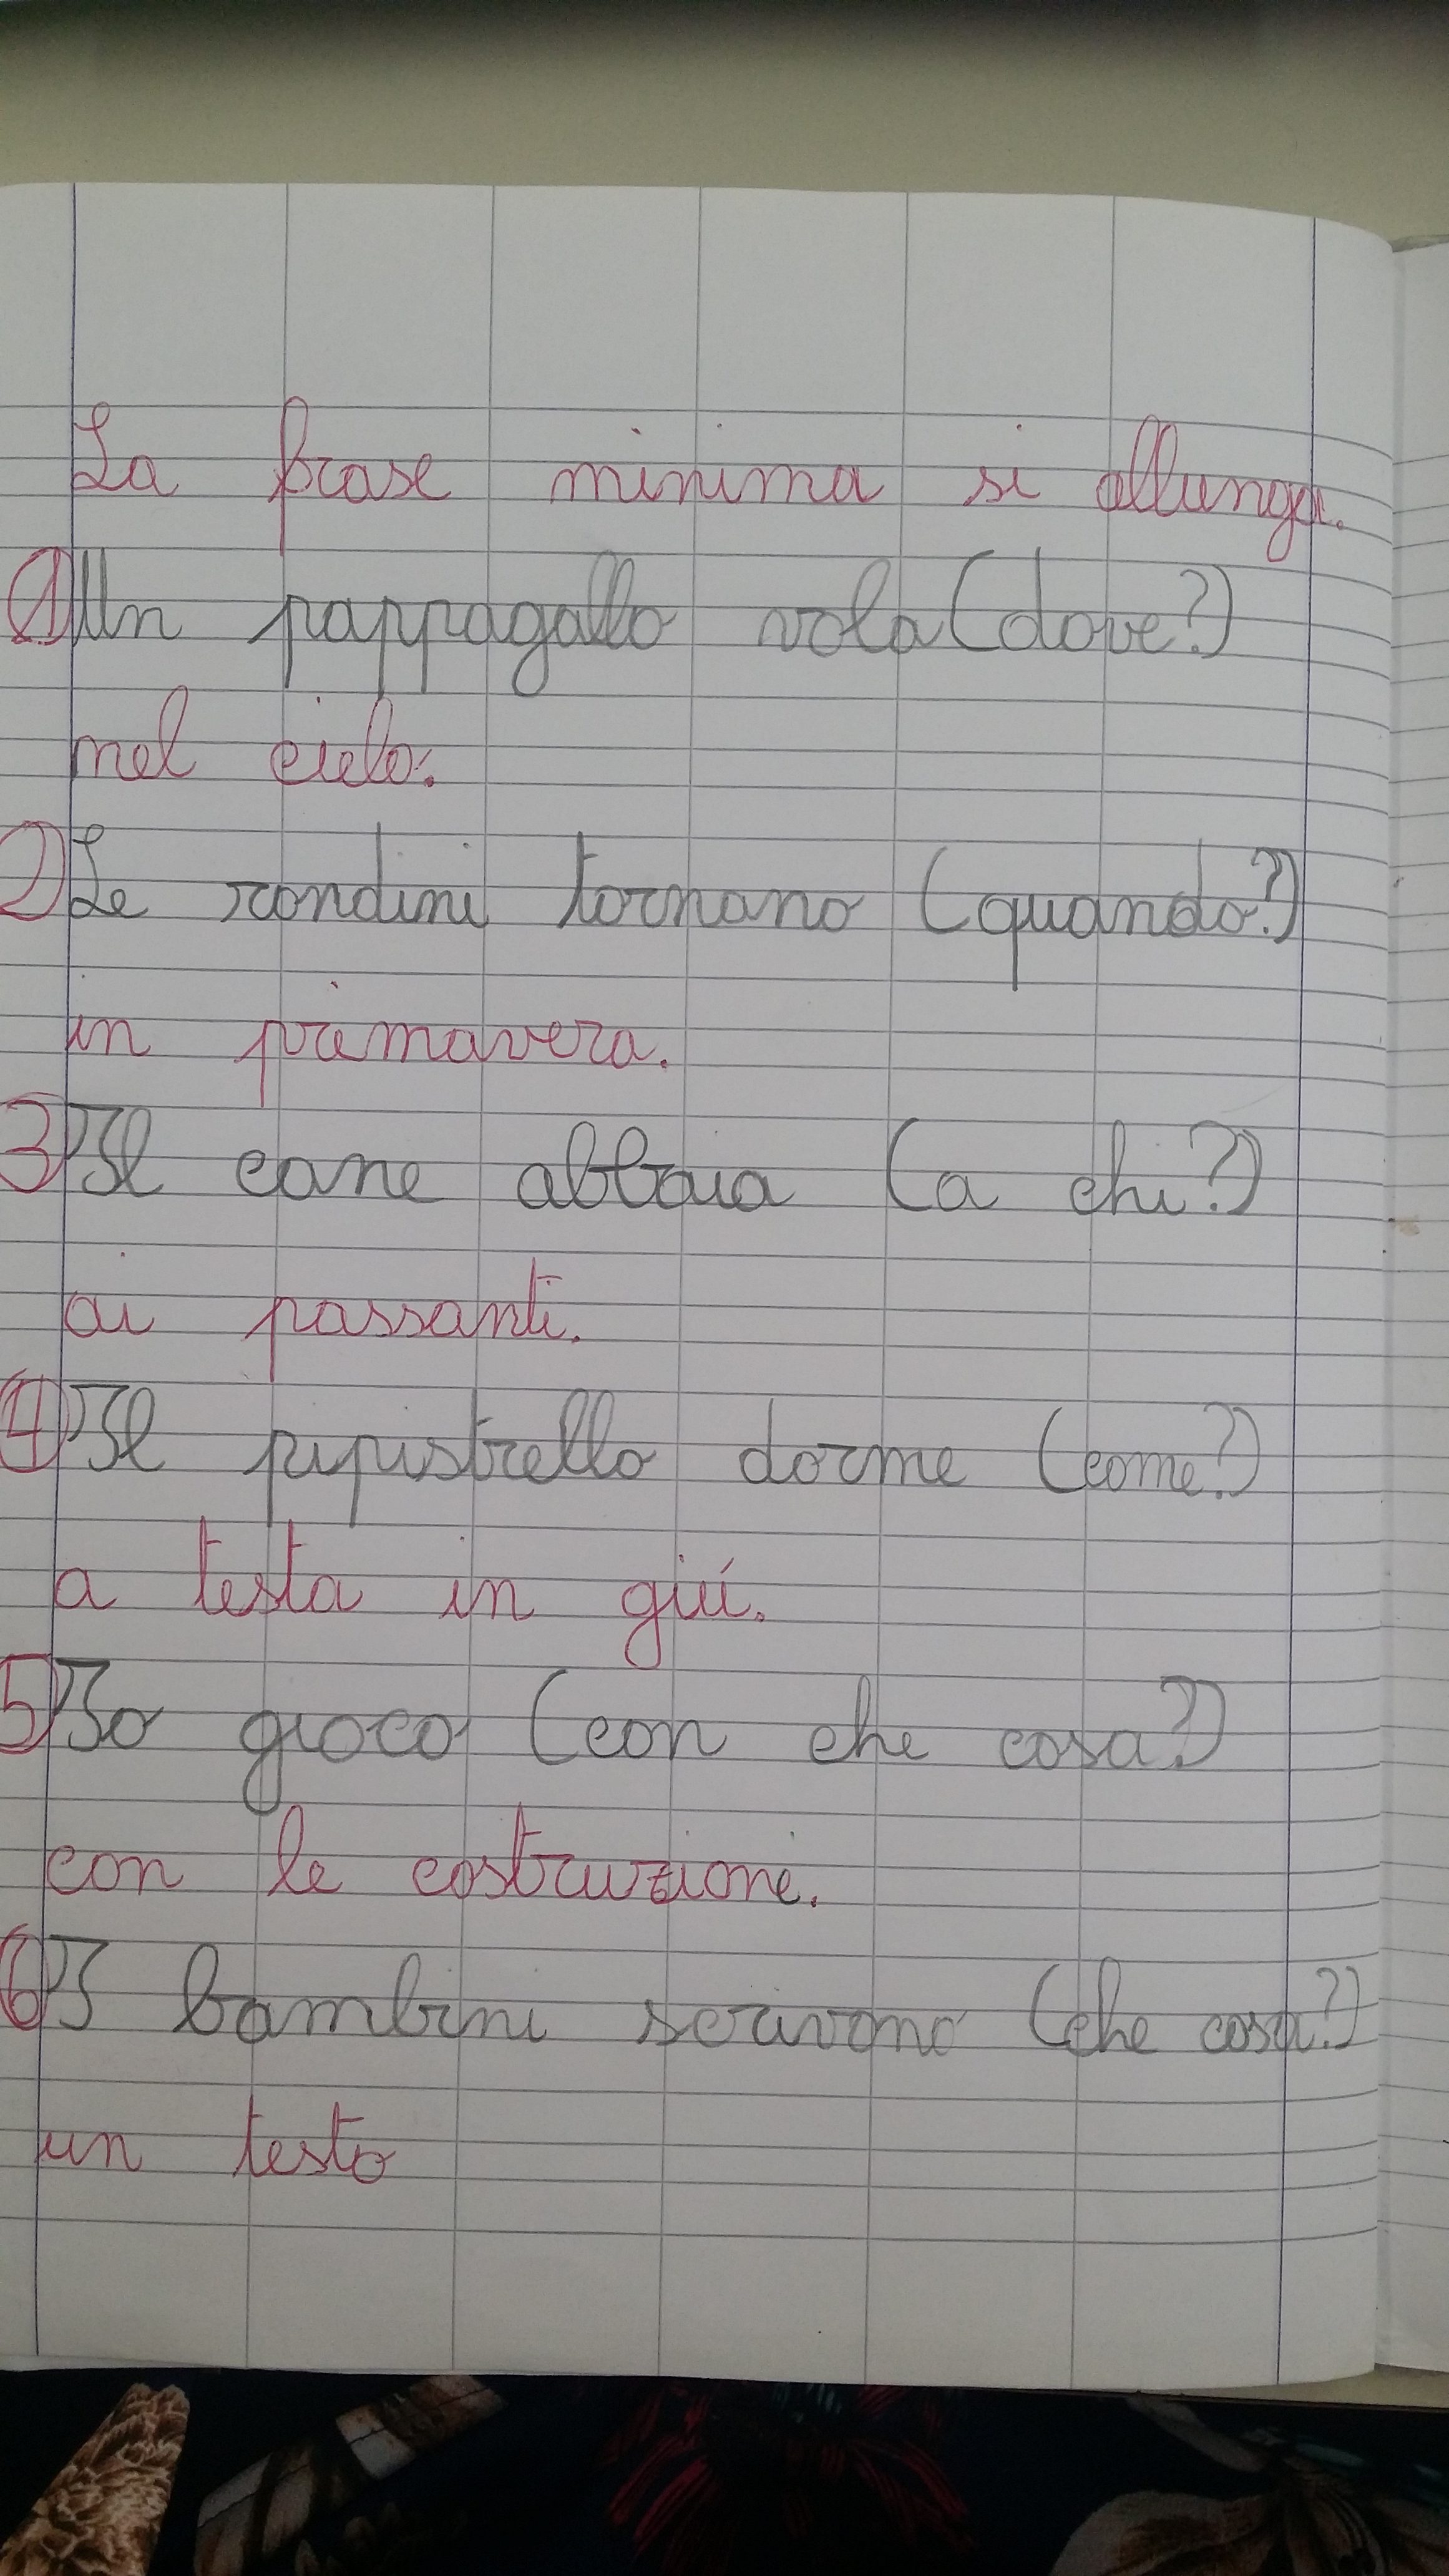 La frase minima si allunga.
1) Un pappagallo vola (dove?)
nel cielo.
2) Le rondini tornano (quando?)
in primavera.
3) Il cane abbaia (a chi?)
ai passanti.
4) Il pipistrello dorme (come?)
a testa in giú.
5) Io gioco (con che cosa?)
con le costruzione.
6) I bambini scrivono (che cosa?)
un testo